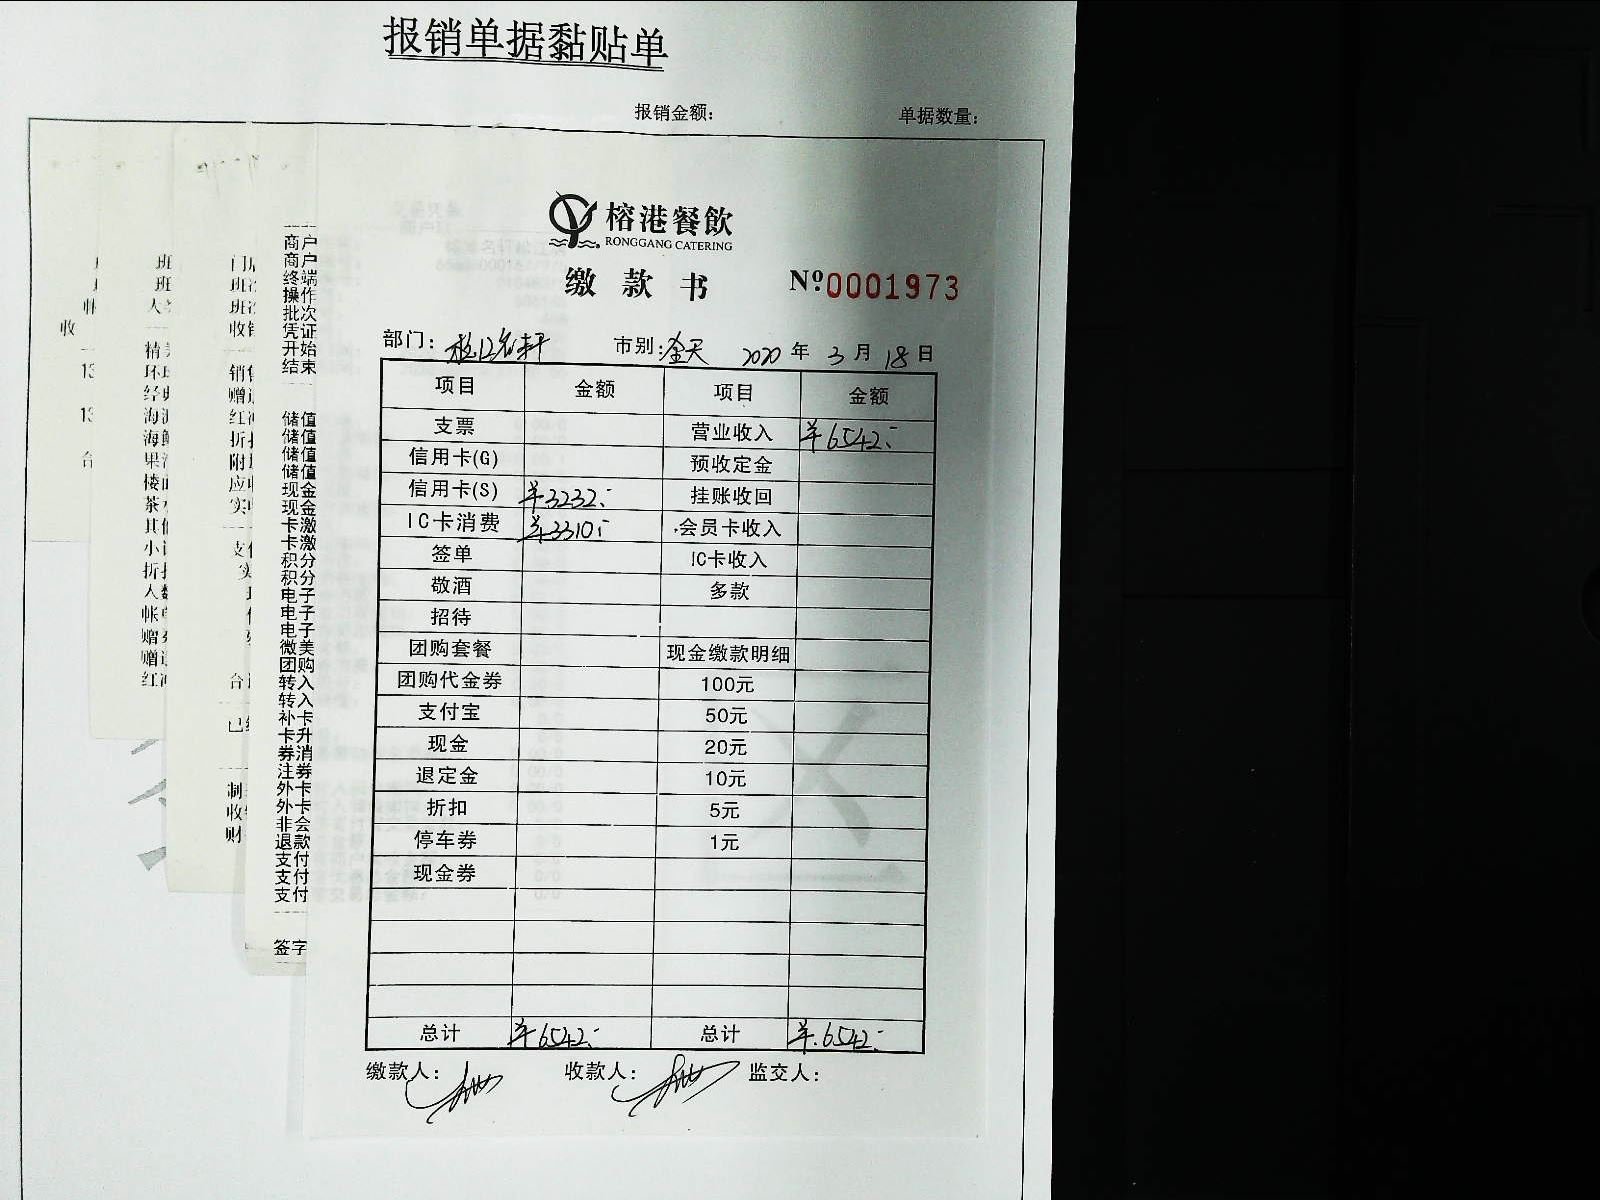 报销单据黏贴单
报销金额： 单据数量：
榕港餐飲
RONGGANG CATERING
缴款书 №0001973
部门： 市别：全天 2020年3月18日
项目 金额 项目 金额
支票 营业收入 ¥6542.-
信用卡(G) 预收定金
信用卡(S) ¥3232.- 挂账收回
IC卡消费 ¥3310.- 会员卡收入
签单 IC卡收入
敬酒 多款
招待
团购套餐 现金缴款明细
团购代金券 100元
支付宝 50元
现金 20元
退定金 10元
折扣 5元
停车券 1元
现金券
总计 ¥6542.- 总计 ¥.6542.-
缴款人： 收款人： 监交人：
收
13
13
台
班
班
人
精
环
经
海
海
果
楼
茶
其
小
折
人
帐
赠
赠
红
门
班
班
收
销
赠
红
折
附
应
实
支
台
已
制
收
财
商户
商户
终端
操作
批次
凭证
开始
结束
储值
储值
储值
储值
现金
现金
卡激
卡激
积分
积分
电子
电子
电子
微美
团购
转入
转入
补卡
卡升
券消
注券
外卡
外卡
非会
退款
支付
支付
支付
签字